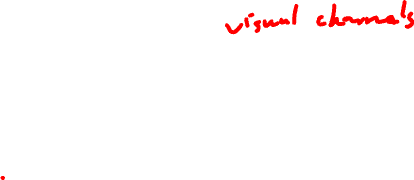 visual channels